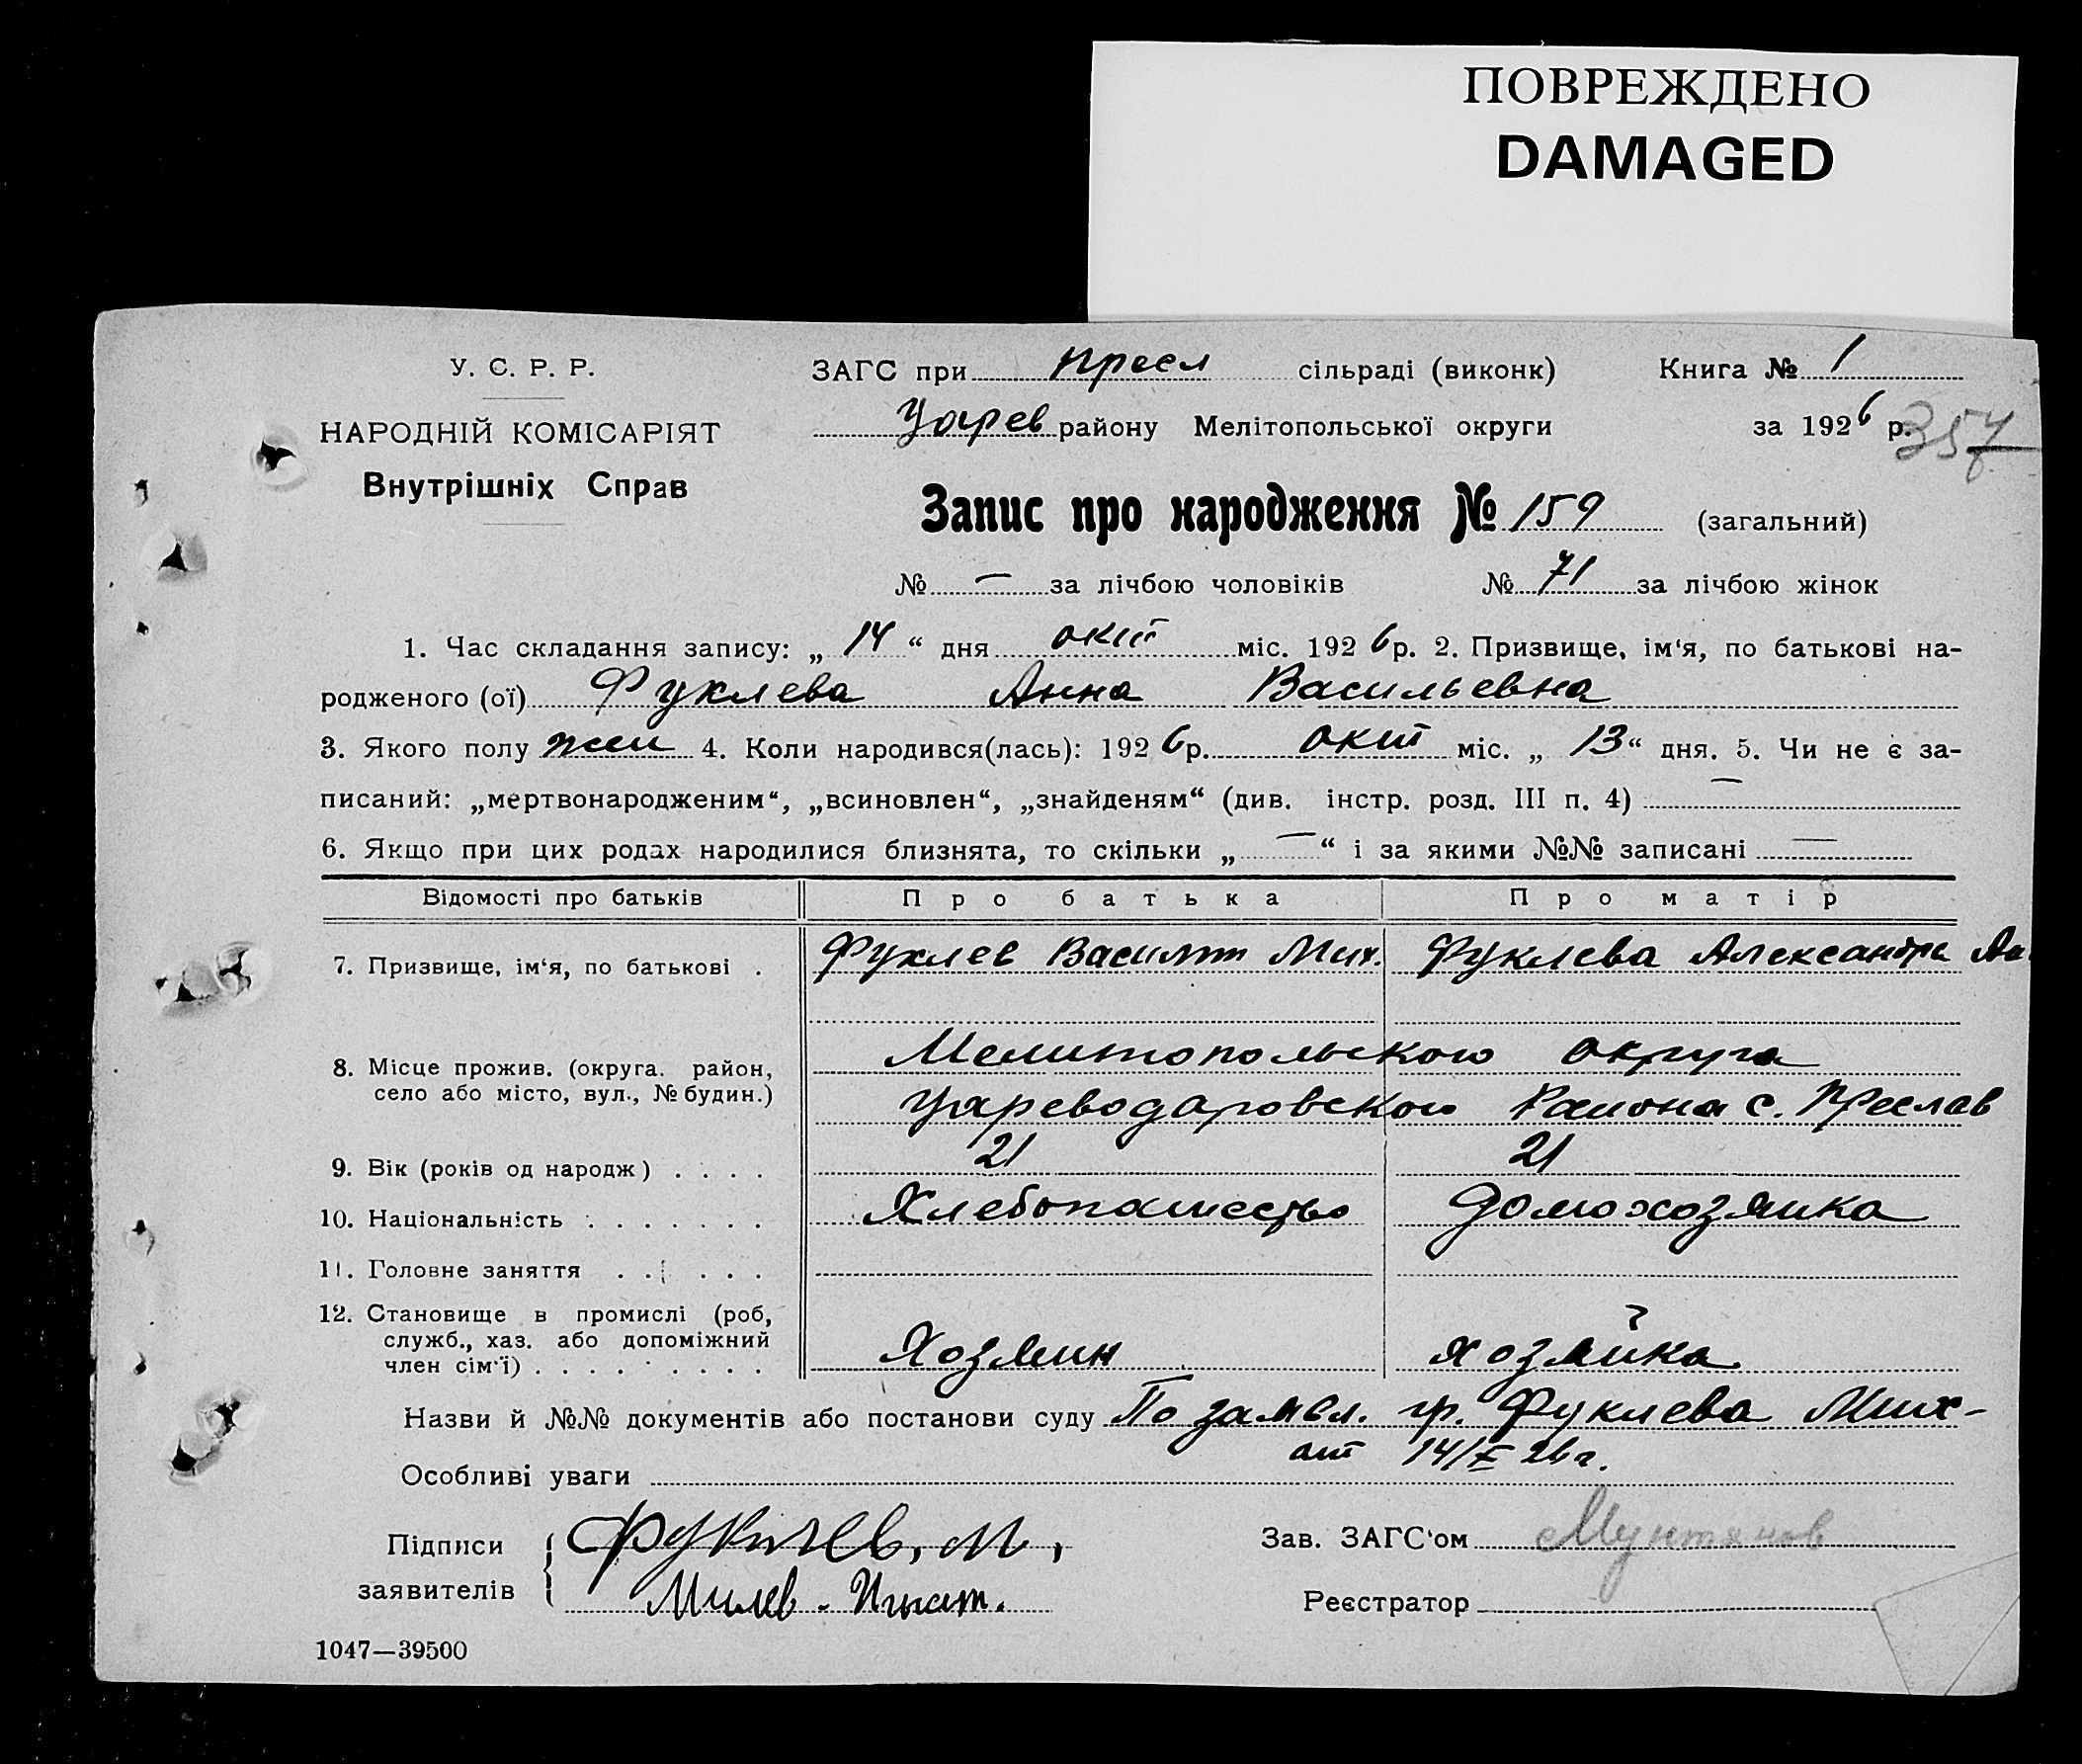 ПОВРЕЖДЕНО
DAMAGED
У. С. Р. Р.
НАРОДНІЙ КОМІСАРІЯТ
Внутрішніх Справ
ЗАГС при Пресл сільраді (виконк) Книга № 1
Царев району Мелітопольської округи за 1926 р.
357
Запис про народження № 159 (загальний)
№ — за лічбою чоловіків № 71 за лічбою жінок
1. Час складання запису: „ 14 “ дня окт міс. 1926 р. 2. Призвище, ім‘я, по батькові на-
родженого (ої) Фуклева Анна Васильевна
3. Якого полу жен 4. Коли народився(лась): 1926 р. окт міс. „ 13 “ дня. 5. Чи не є за-
писаний: „мертвонародженим“, „всиновлен“, „знайденям“ (див. інстр. розд. III п. 4) —
6. Якщо при цих родах народилися близнята, то скільки „ — “ і за якими №№ записані —
Відомості про батьків Про батька Про матір
7. Призвище, ім‘я, по батькові . Фуклев Василий Мих. Фуклева Александра
8. Місце прожив. (округа. район, Мелитопольского округа
село або місто, вул., № будин.) Цареводаровского Района с. Преслав
9. Вік (років од народж) . . . . 21 21
10. Національність . . . . . . . Хлебопашество домохозяика
11. Головне заняття . . . . .
12. Становище в промислі (роб,
служб., хаз. або допоміжний
член сім‘ї) . . . . . . . . . Хозяин хозяйка
Назви й №№ документів або постанови суду По заявл. гр. Фуклева Мих-
от 14/X 26 г.
Особливі уваги
Підписи заявителів Фуклев, М,
Милев. Игнат.
Зав. ЗАГС‘ом Мунтянов
Реєстратор
1047—39500